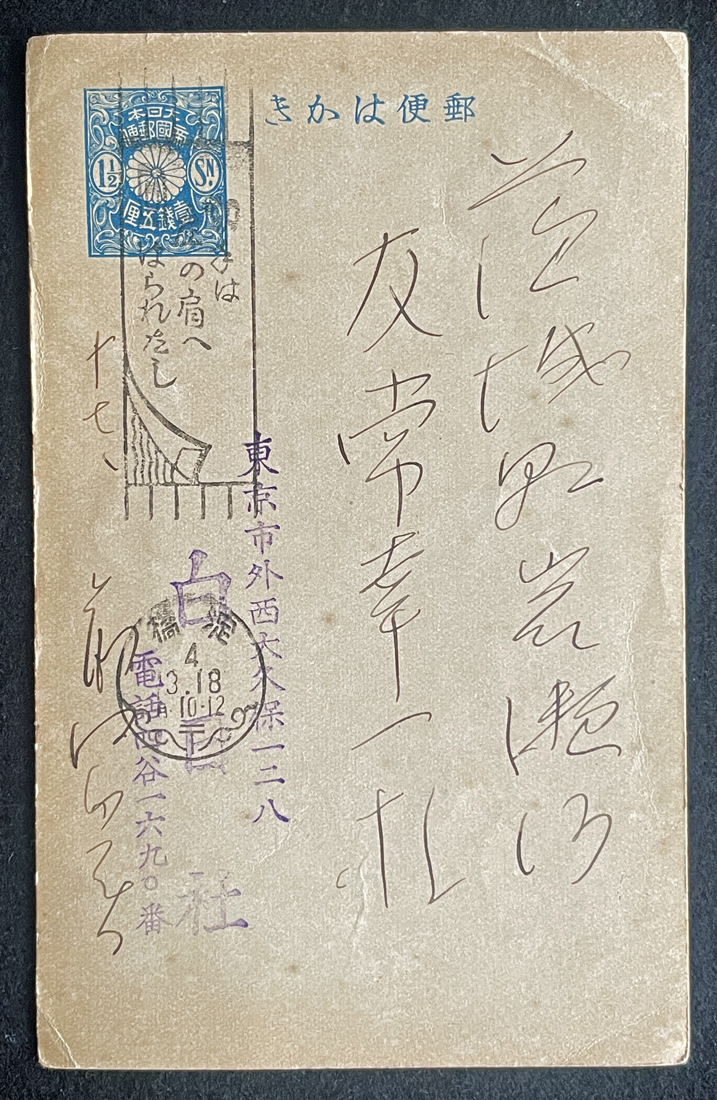 郵便はかき
大日本
帝國郵便
1½ SN.
壹錢五厘
茨城県岩瀬町
友常幸一様
手は
の肩へ
はられたし
十七、
東京市外西大久保一二八
白日社
電話四谷一六九〇番
淀橋
4
3.18
10-12